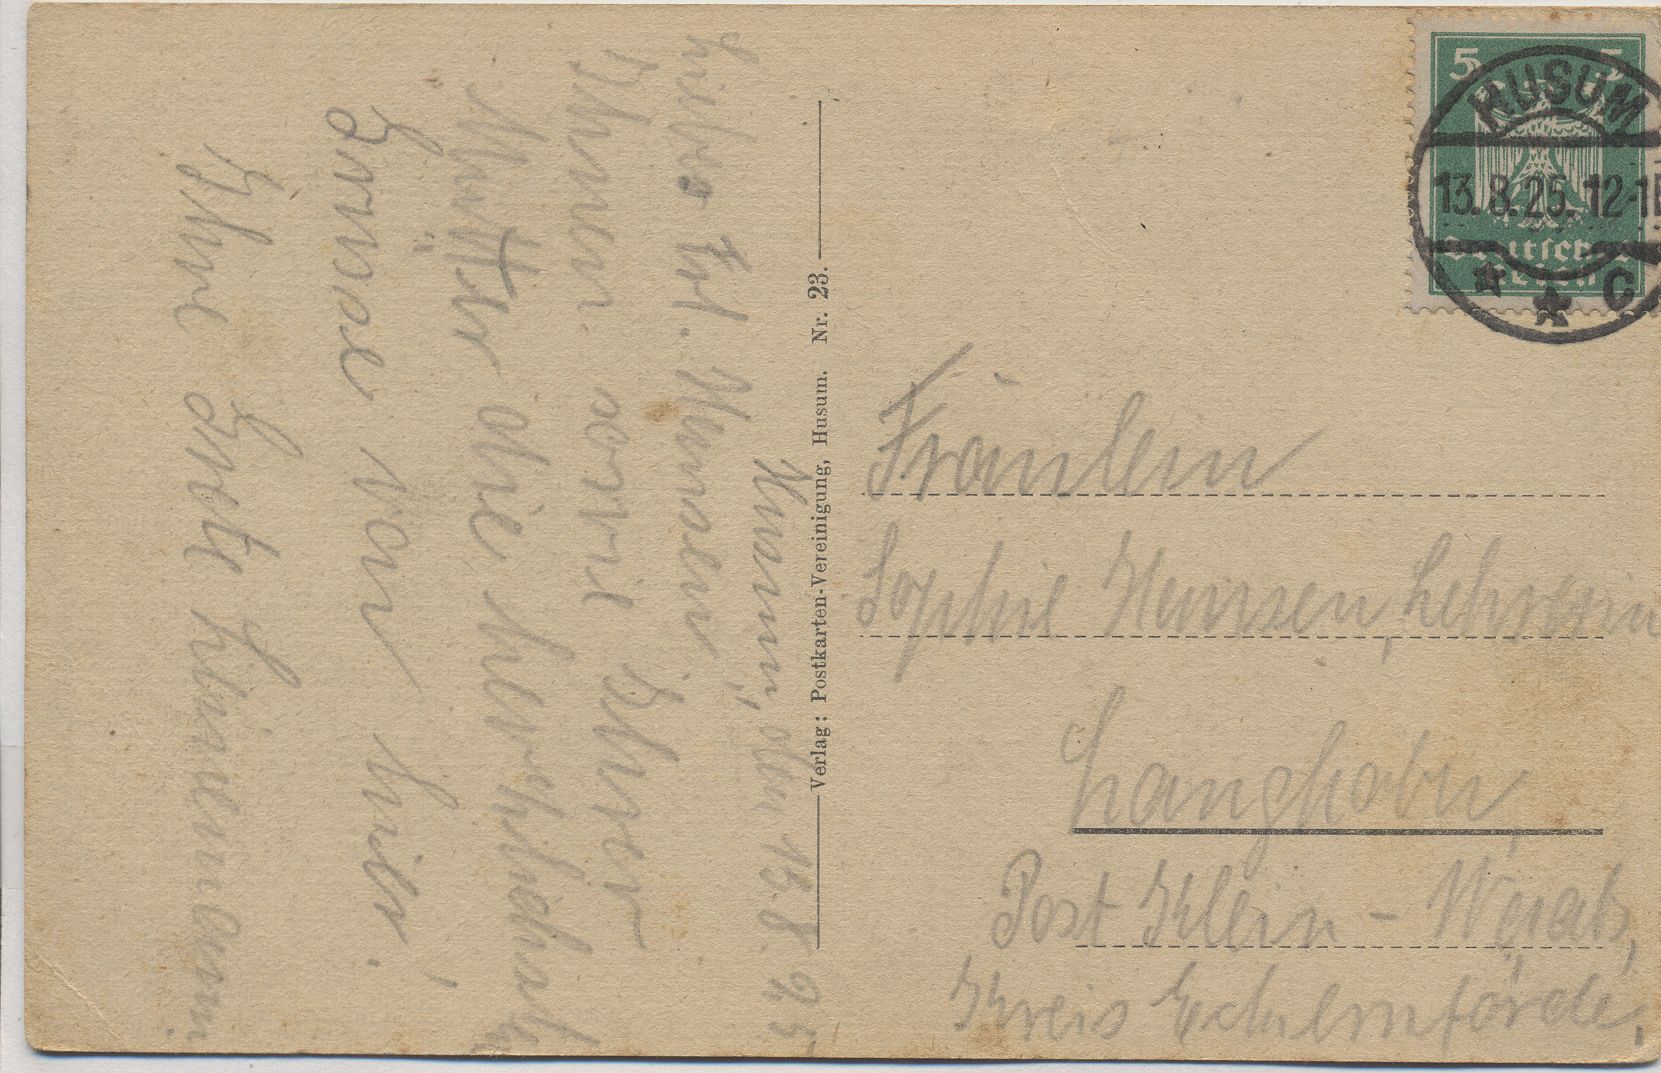 Husum, den 13.8.25
Liebes Frl. Hansen
Ihnen und Ihrer
Mutter die
Grüsse von hier!
Ihre Grete
Verlag: Postkarten-Vereinigung, Husum. Nr. 23.
5 5
Deutsches
Reich
HUSUM
13.8.25. 12-1
C
Fräulein
Sophie Hansen, Lehrerin
Langholz,
Post Klein-Waabs,
Kreis Eckernförde.